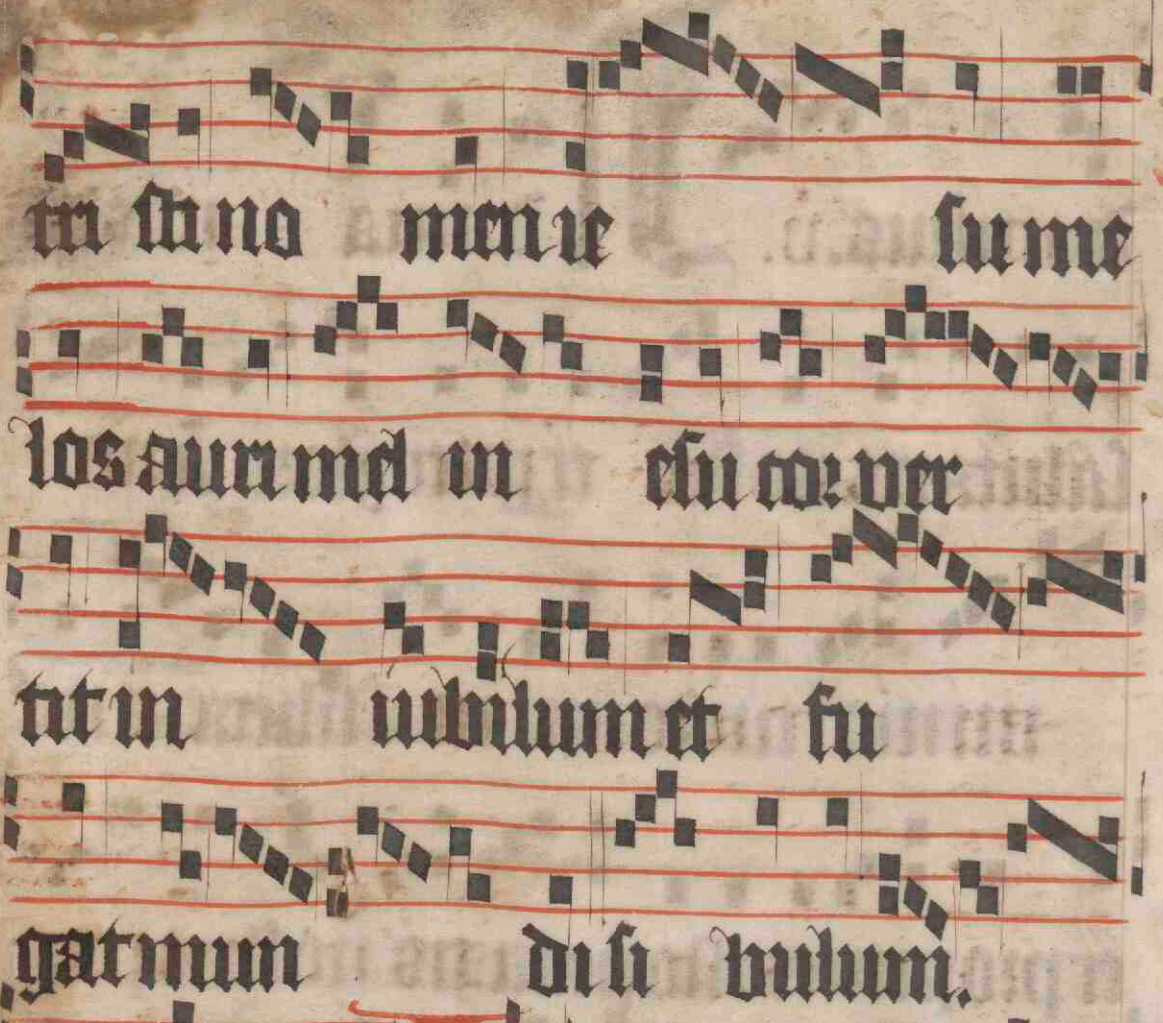 tri sti no men ie su me
los auri mel in esu cor ver
tit in iubilum et fu
gat mun di si bulum.